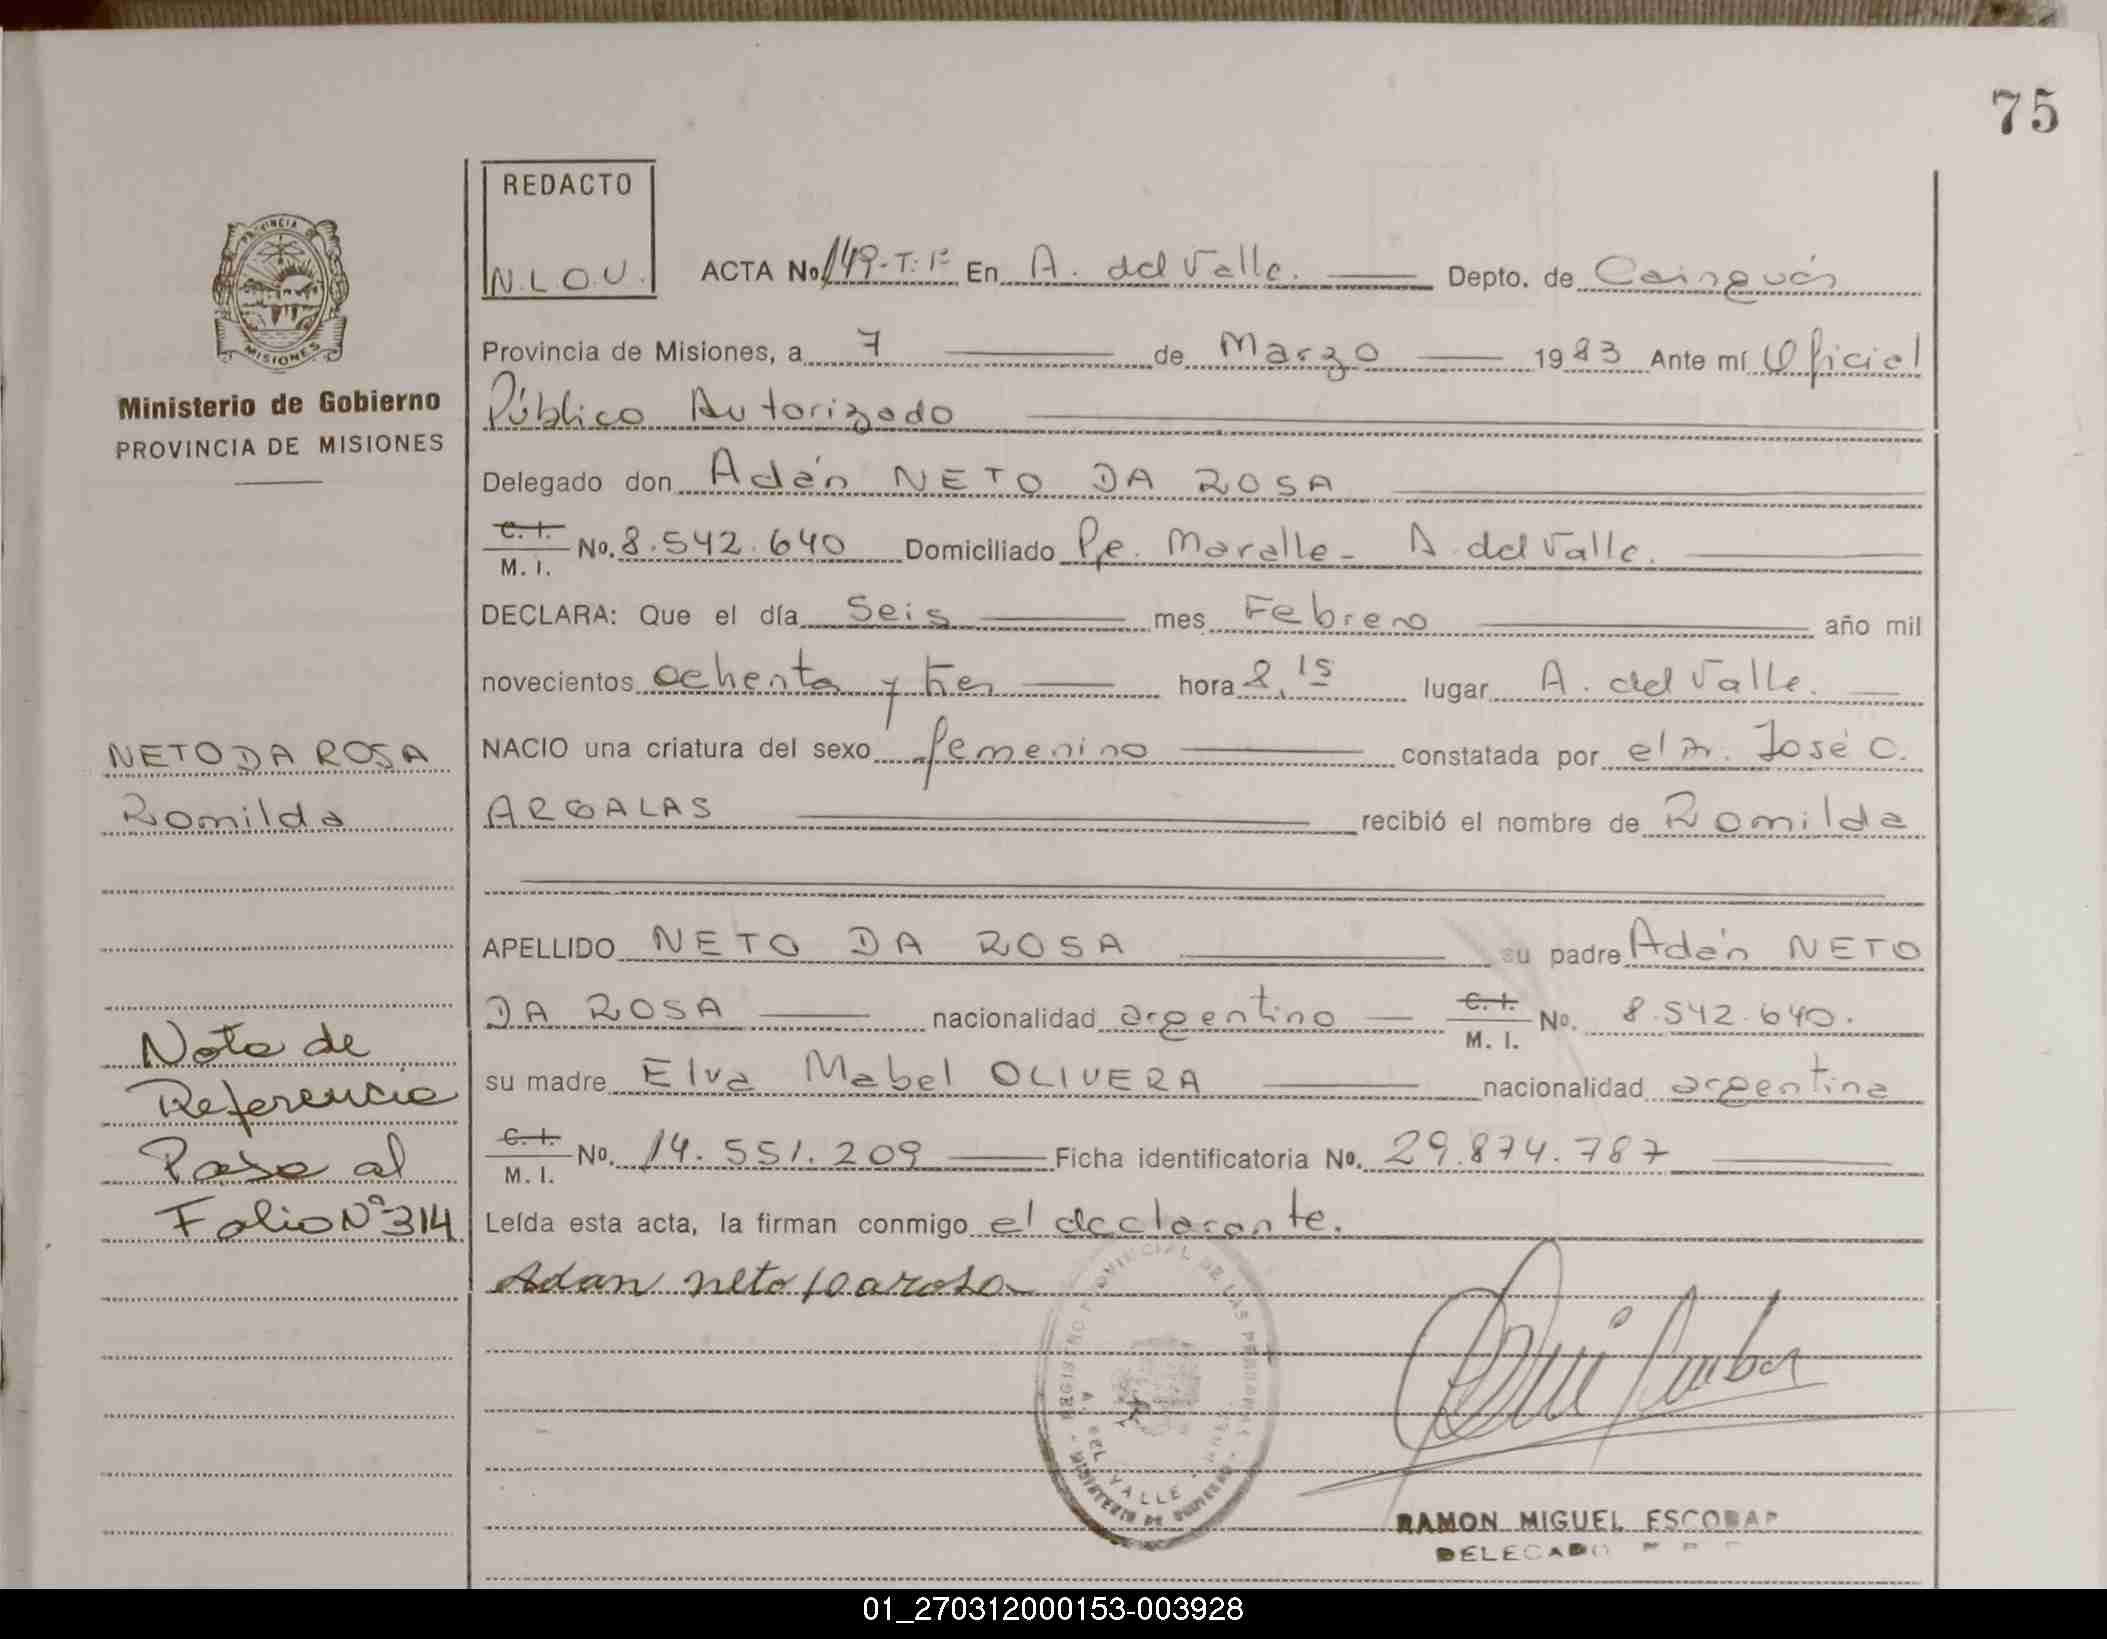 75
REDACTO
N.L.O.U.
PROVINCIA DE
MISIONES
Ministerio de Gobierno
PROVINCIA DE MISIONES
ACTA No. 149-T: 1º En A. del Valle. Depto. de Cainguás
Provincia de Misiones, a 7 de Marzo 1983 Ante mí Oficial
Público Autorizado
Delegado don Adán NETO DA ROSA
C. I.
M. I. No. 8.542.640 Domiciliado Pje. Maralle - A. del Valle.
DECLARA: Que el día Seis mes Febrero año mil
novecientos ochenta y tres hora 8,15 lugar A. del Valle.
NACIO una criatura del sexo femenino constatada por el Dr. José C.
ARGALAS recibió el nombre de Romilda
APELLIDO NETO DA ROSA su padre Adán NETO
DA ROSA nacionalidad argentino C. I.
M. I. No. 8.542.640.
su madre Elva Mabel OLIVERA nacionalidad argentina
C. I.
M. I. No. 14.551.209 Ficha identificatoria No. 29.874.787
Leída esta acta, la firman conmigo el declarante.
Adan neto Daroso
NETO DA ROSA
Romilda
Nota de
Referencia
Pase al
Folio Nº 314
REGISTRO PROVINCIAL DE LAS PERSONAS
A. DEL VALLE
MINISTERIO DE GOBIERNO
RAMON MIGUEL ESCOBAR
DELEGADO
01_270312000153-003928